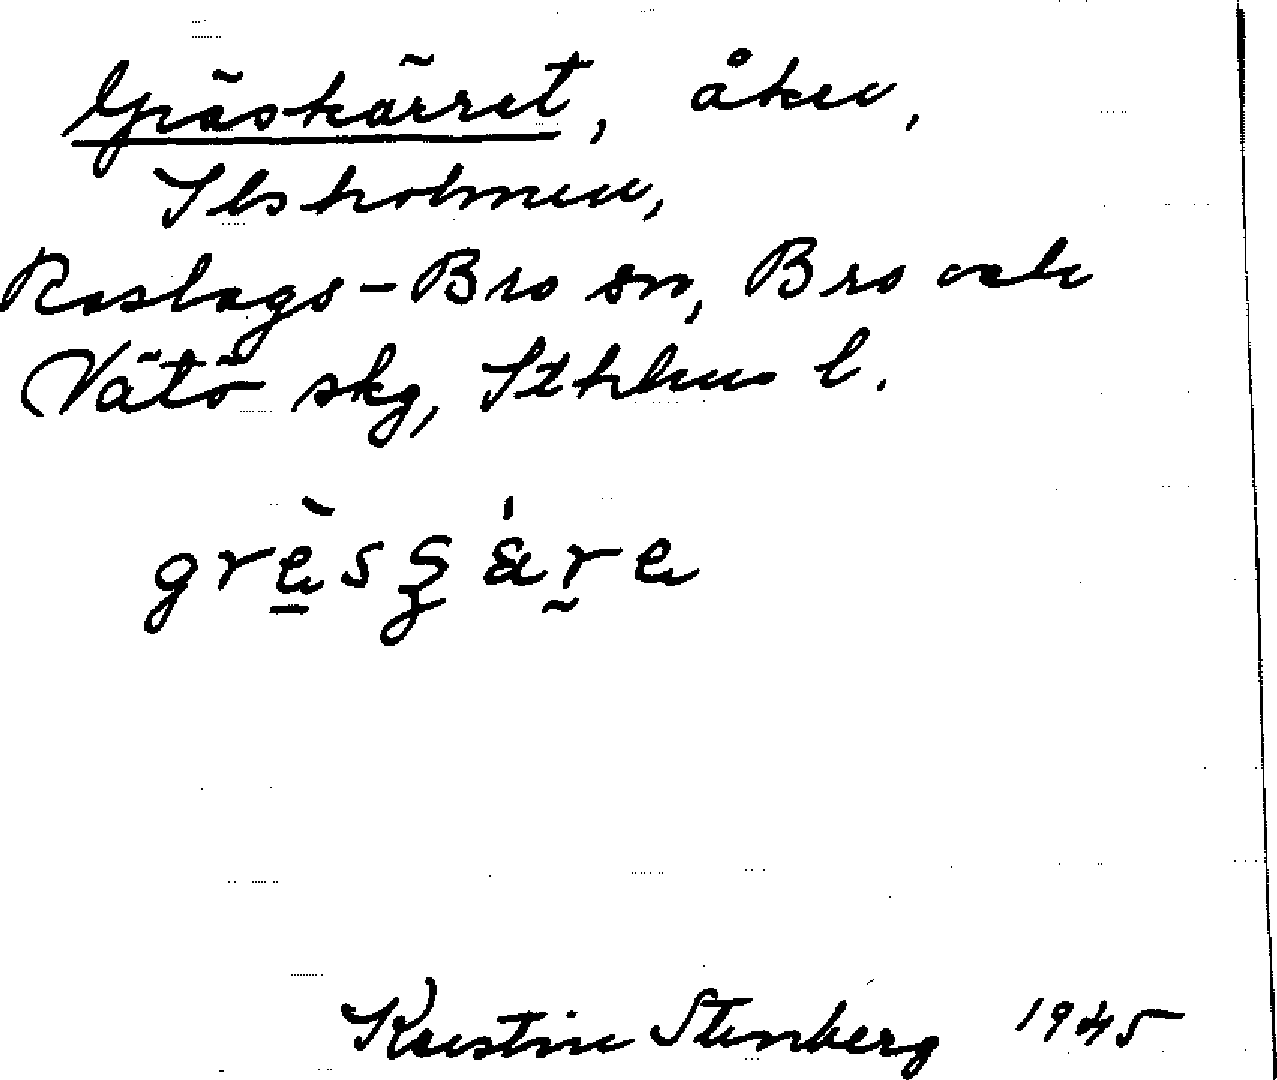 Gräskärret, åker,
Ilsholmen,
Roslags-Bro sn, Bro och
Vätö skg, Sthlms l.
Kerstin Stenberg 1945